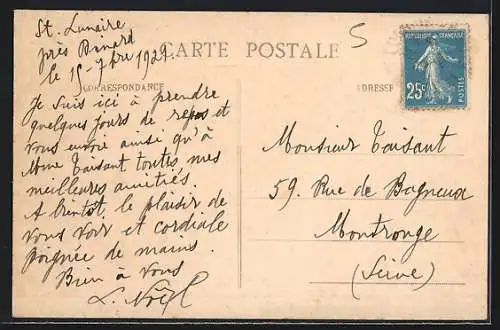 St. Lunaire
près Dinard
le 15-7bre 1921.
CARTE POSTALE
5
CORRESPONDANCE
ADRESSE
REPUBLIQUE FRANÇAISE
25c
POSTES
Je suis ici à prendre
quelques jours de repos et
vous envoie ainsi qu'à
Mme Taisant toutes mes
meilleures amitiés.
A bientôt, le plaisir de
vous voir et cordiale
poignée de mains.
Bien à vous
L. Noël
Monsieur Taisant
59. Rue de Bagneux
Montrouge
(Seine)